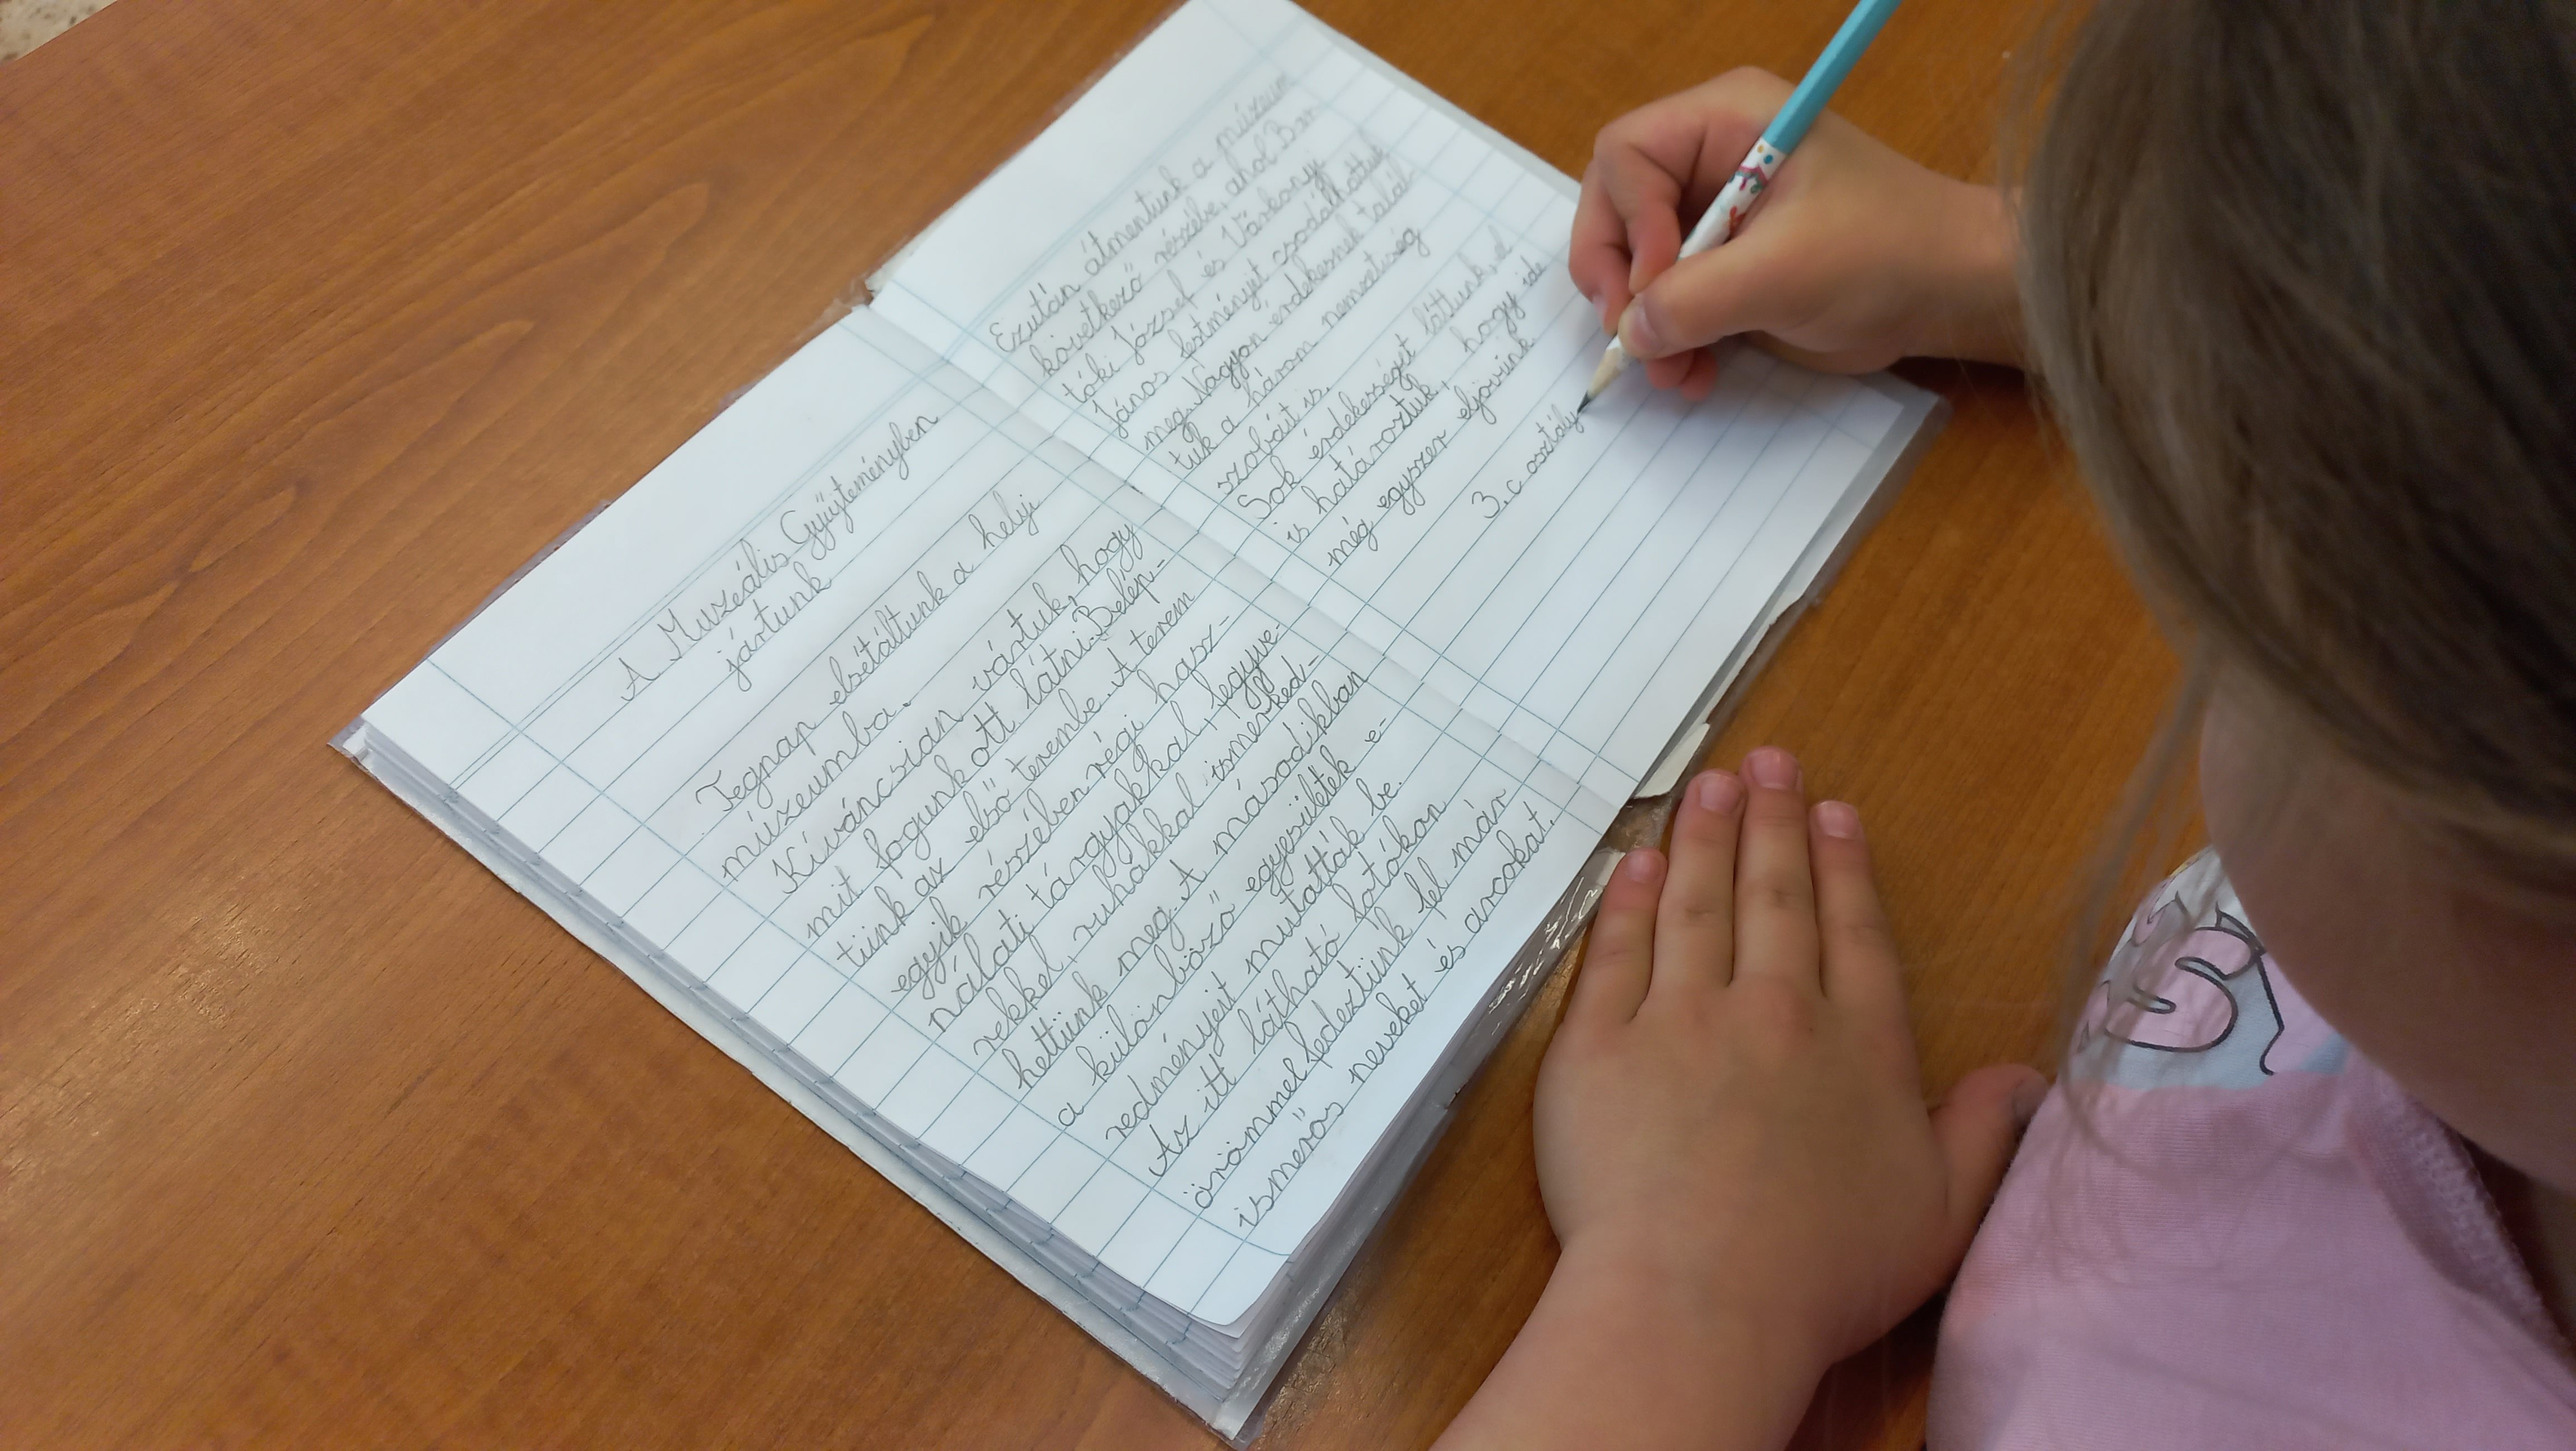 A Muzeális Gyűjteményben
jártunk
Tegnap elsétáltunk a helyi
múzeumba.
Kíváncsian vártuk, hogy
mit fogunk ott látni. Belép-
tünk az első terembe. A terem
egyik részében régi hasz-
nálati tárgyakkal, fegyve-
rekkel, ruhákkal ismerked-
hettünk meg. A másodikban
a különböző egyesületek e-
redményeit mutatták be.
Az itt látható fotókon
örömmel fedeztünk fel már
ismerős neveket és arcokat.
Ezután átmentünk a múzeum
következő részébe, ahol Bar
tóki József és Várkonyi
János festményeit csodálhattuk
meg. Nagyon érdekesnek talál
tuk a három nemzetiség
szobáit is.
Sok érdekességet láttunk, d
is határoztuk, hogy ide
még egyszer eljövünk
3. c osztály